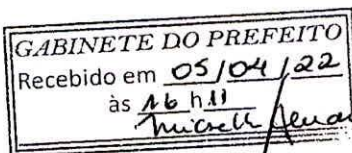 GABINETE DO PREFEITO
Recebido em 05/04/22
às 16 h 11